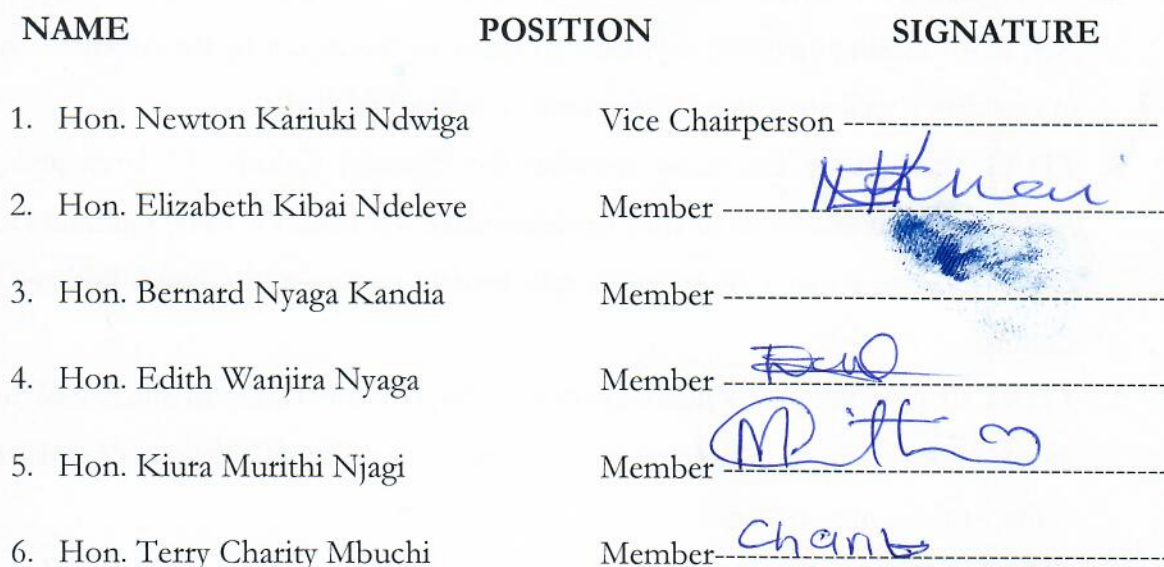 NAME POSITION SIGNATURE
1. Hon. Newton Kariuki Ndwiga Vice Chairperson
2. Hon. Elizabeth Kibai Ndeleve Member
3. Hon. Bernard Nyaga Kandia Member
4. Hon. Edith Wanjira Nyaga Member
5. Hon. Kiura Murithi Njagi Member
6. Hon. Terry Charity Mbuchi Member